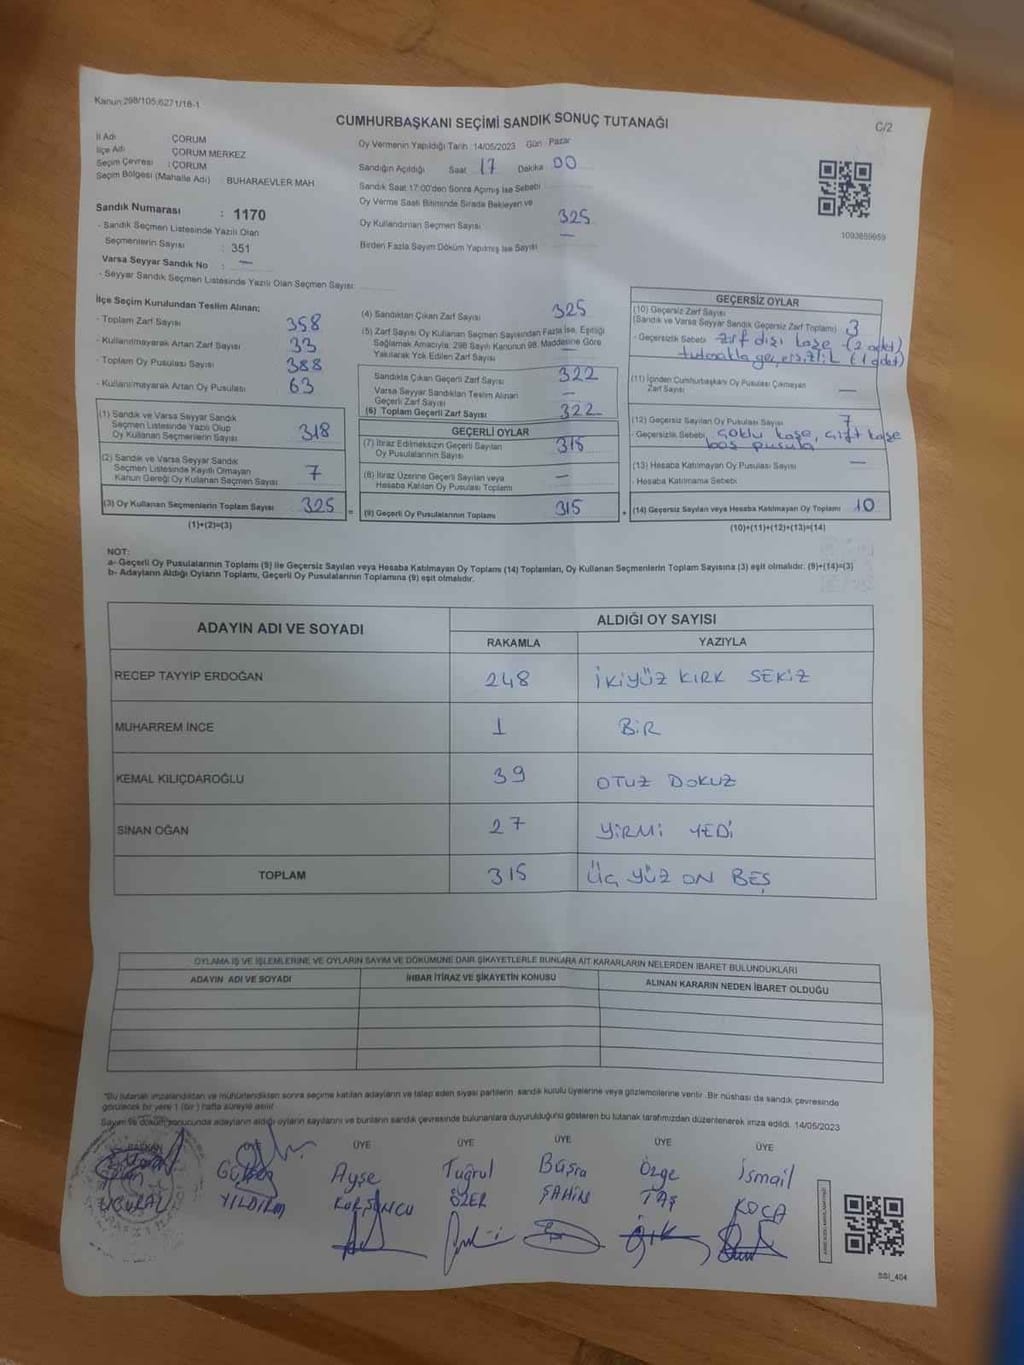 Kanun:298/105,6271/18-1
CUMHURBAŞKANI SEÇİMİ SANDIK SONUÇ TUTANAĞI
C/2
İl Adı ÇORUM
İlçe Adı ÇORUM MERKEZ
Seçim Çevresi : ÇORUM
Seçim Bölgesi (Mahalle Adı) BUHARAEVLER MAH
Sandık Numarası : 1170
- Sandık Seçmen Listesinde Yazılı Olan
Seçmenlerin Sayısı : 351
Varsa Seyyar Sandık No : —
- Seyyar Sandık Seçmen Listesinde Yazılı Olan Seçmen Sayısı:
Oy Vermenin Yapıldığı Tarih :14/05/2023 Gün: Pazar
Sandığın Açıldığı Saat 17 Dakika 00
Sandık Saat 17:00'den Sonra Açımış İse Sebebi
Oy Verme Saati Bitiminde Sırada Bekleyen ve
Oy Kullandırılan Seçmen Sayısı 325
Birden Fazla Sayım Döküm Yapılmış İse Sayısı —
1093859959
İlçe Seçim Kurulundan Teslim Alınan;
- Toplam Zarf Sayısı 358
- Kullanılmayarak Artan Zarf Sayısı 33
- Toplam Oy Pusulası Sayısı 388
- Kullanılmayarak Artan Oy Pusulası 63
(1) Sandık ve Varsa Seyyar Sandık
Seçmen Listesinde Yazılı Olup
Oy Kullanan Seçmenlerin Sayısı 318
(2) Sandık ve Varsa Seyyar Sandık
Seçmen Listesinde Kayıtlı Olmayan
Kanun Gereği Oy Kullanan Seçmen Sayısı 7
(3) Oy Kullanan Seçmenlerin Toplam Sayısı 325
(1)+(2)=(3)
(4) Sandıktan Çıkan Zarf Sayısı 325
(5) Zarf Sayısı Oy Kullanan Seçmen Sayısından Fazla İse, Eşitliği
Sağlamak Amacıyla, 298 Sayılı Kanunun 98. Maddesine Göre
Yakılarak Yok Edilen Zarf Sayısı —
Sandıkta Çıkan Geçerli Zarf Sayısı 322
Varsa Seyyar Sandıktan Teslim Alınan
Geçerli Zarf Sayısı —
(6) Toplam Geçerli Zarf Sayısı 322
GEÇERLİ OYLAR
(7) İtiraz Edilmeksizin Geçerli Sayılan
Oy Pusulalarının Sayısı 315
(8) İtiraz Üzerine Geçerli Sayılan veya
Hesaba Katılan Oy Pusulası Toplamı —
= (9) Geçerli Oy Pusulalarının Toplamı 315
GEÇERSİZ OYLAR
(10) Geçersiz Zarf Sayısı
(Sandık ve Varsa Seyyar Sandık Geçersiz Zarf Toplamı) 3
- Geçersizlik Sebebi zarf dışı kaşe (2 adet)
tutanakla geçersizlik (1 adet)
(11) İçinden Cumhurbaşkanı Oy Pusulası Çıkmayan
Zarf Sayısı —
(12) Geçersiz Sayılan Oy Pusulası Sayısı 7
- Geçersizlik Sebebi çoklu kaşe, çift kaşe
boş pusula
(13) Hesaba Katılmayan Oy Pusulası Sayısı —
- Hesaba Katılmama Sebebi
+ (14) Geçersiz Sayılan veya Hesaba Katılmayan Oy Toplamı 10
(10)+(11)+(12)+(13)=(14)
NOT:
a- Geçerli Oy Pusulalarının Toplamı (9) ile Geçersiz Sayılan veya Hesaba Katılmayan Oy Toplamı (14) Toplamları, Oy Kullanan Seçmenlerin Toplam Sayısına (3) eşit olmalıdır. (9)+(14)=(3)
b- Adayların Aldığı Oyların Toplamı, Geçerli Oy Pusulalarının Toplamına (9) eşit olmalıdır.
ADAYIN ADI VE SOYADI ALDIĞI OY SAYISI
RAKAMLA YAZIYLA
RECEP TAYYİP ERDOĞAN 248 İKİYÜZ KIRK SEKİZ
MUHARREM İNCE 1 BİR
KEMAL KILIÇDAROĞLU 39 OTUZ DOKUZ
SİNAN OĞAN 27 YİRMİ YEDİ
TOPLAM 315 ÜÇ YÜZ ON BEŞ
OYLAMA İŞ VE İŞLEMLERİNE VE OYLARIN SAYIM VE DÖKÜMÜNE DAİR ŞİKAYETLERLE BUNLARA AİT KARARLARIN NELERDEN İBARET BULUNDUKLARI
ADAYIN ADI VE SOYADI İHBAR İTİRAZ VE ŞİKAYETİN KONUSU ALINAN KARARIN NEDEN İBARET OLDUĞU
"Bu tutanak imzalandıktan ve mühürlendikten sonra seçime katılan adayların ve talep eden siyasi partilerin sandık kurulu üyelerine veya gözlemcilerine verilir. Bir nüshası da sandık çevresinde
görülecek bir yere 1 (bir) hafta süreyle asılır.
Sayım ve döküm sonucunda adayların aldığı oyların sayılarını ve bunların sandık çevresinde bulunanlara duyurulduğunu gösteren bu tutanak tarafımızdan düzenlenerek imza edildi. 14/05/2023
BAŞKAN ÜYE ÜYE ÜYE ÜYE ÜYE
Ayşe Tuğrul Büşra Özge İsmail
YILDIRIM KURŞUNCU ÖZER ŞAHİN TAŞ KOCA
SSI_404